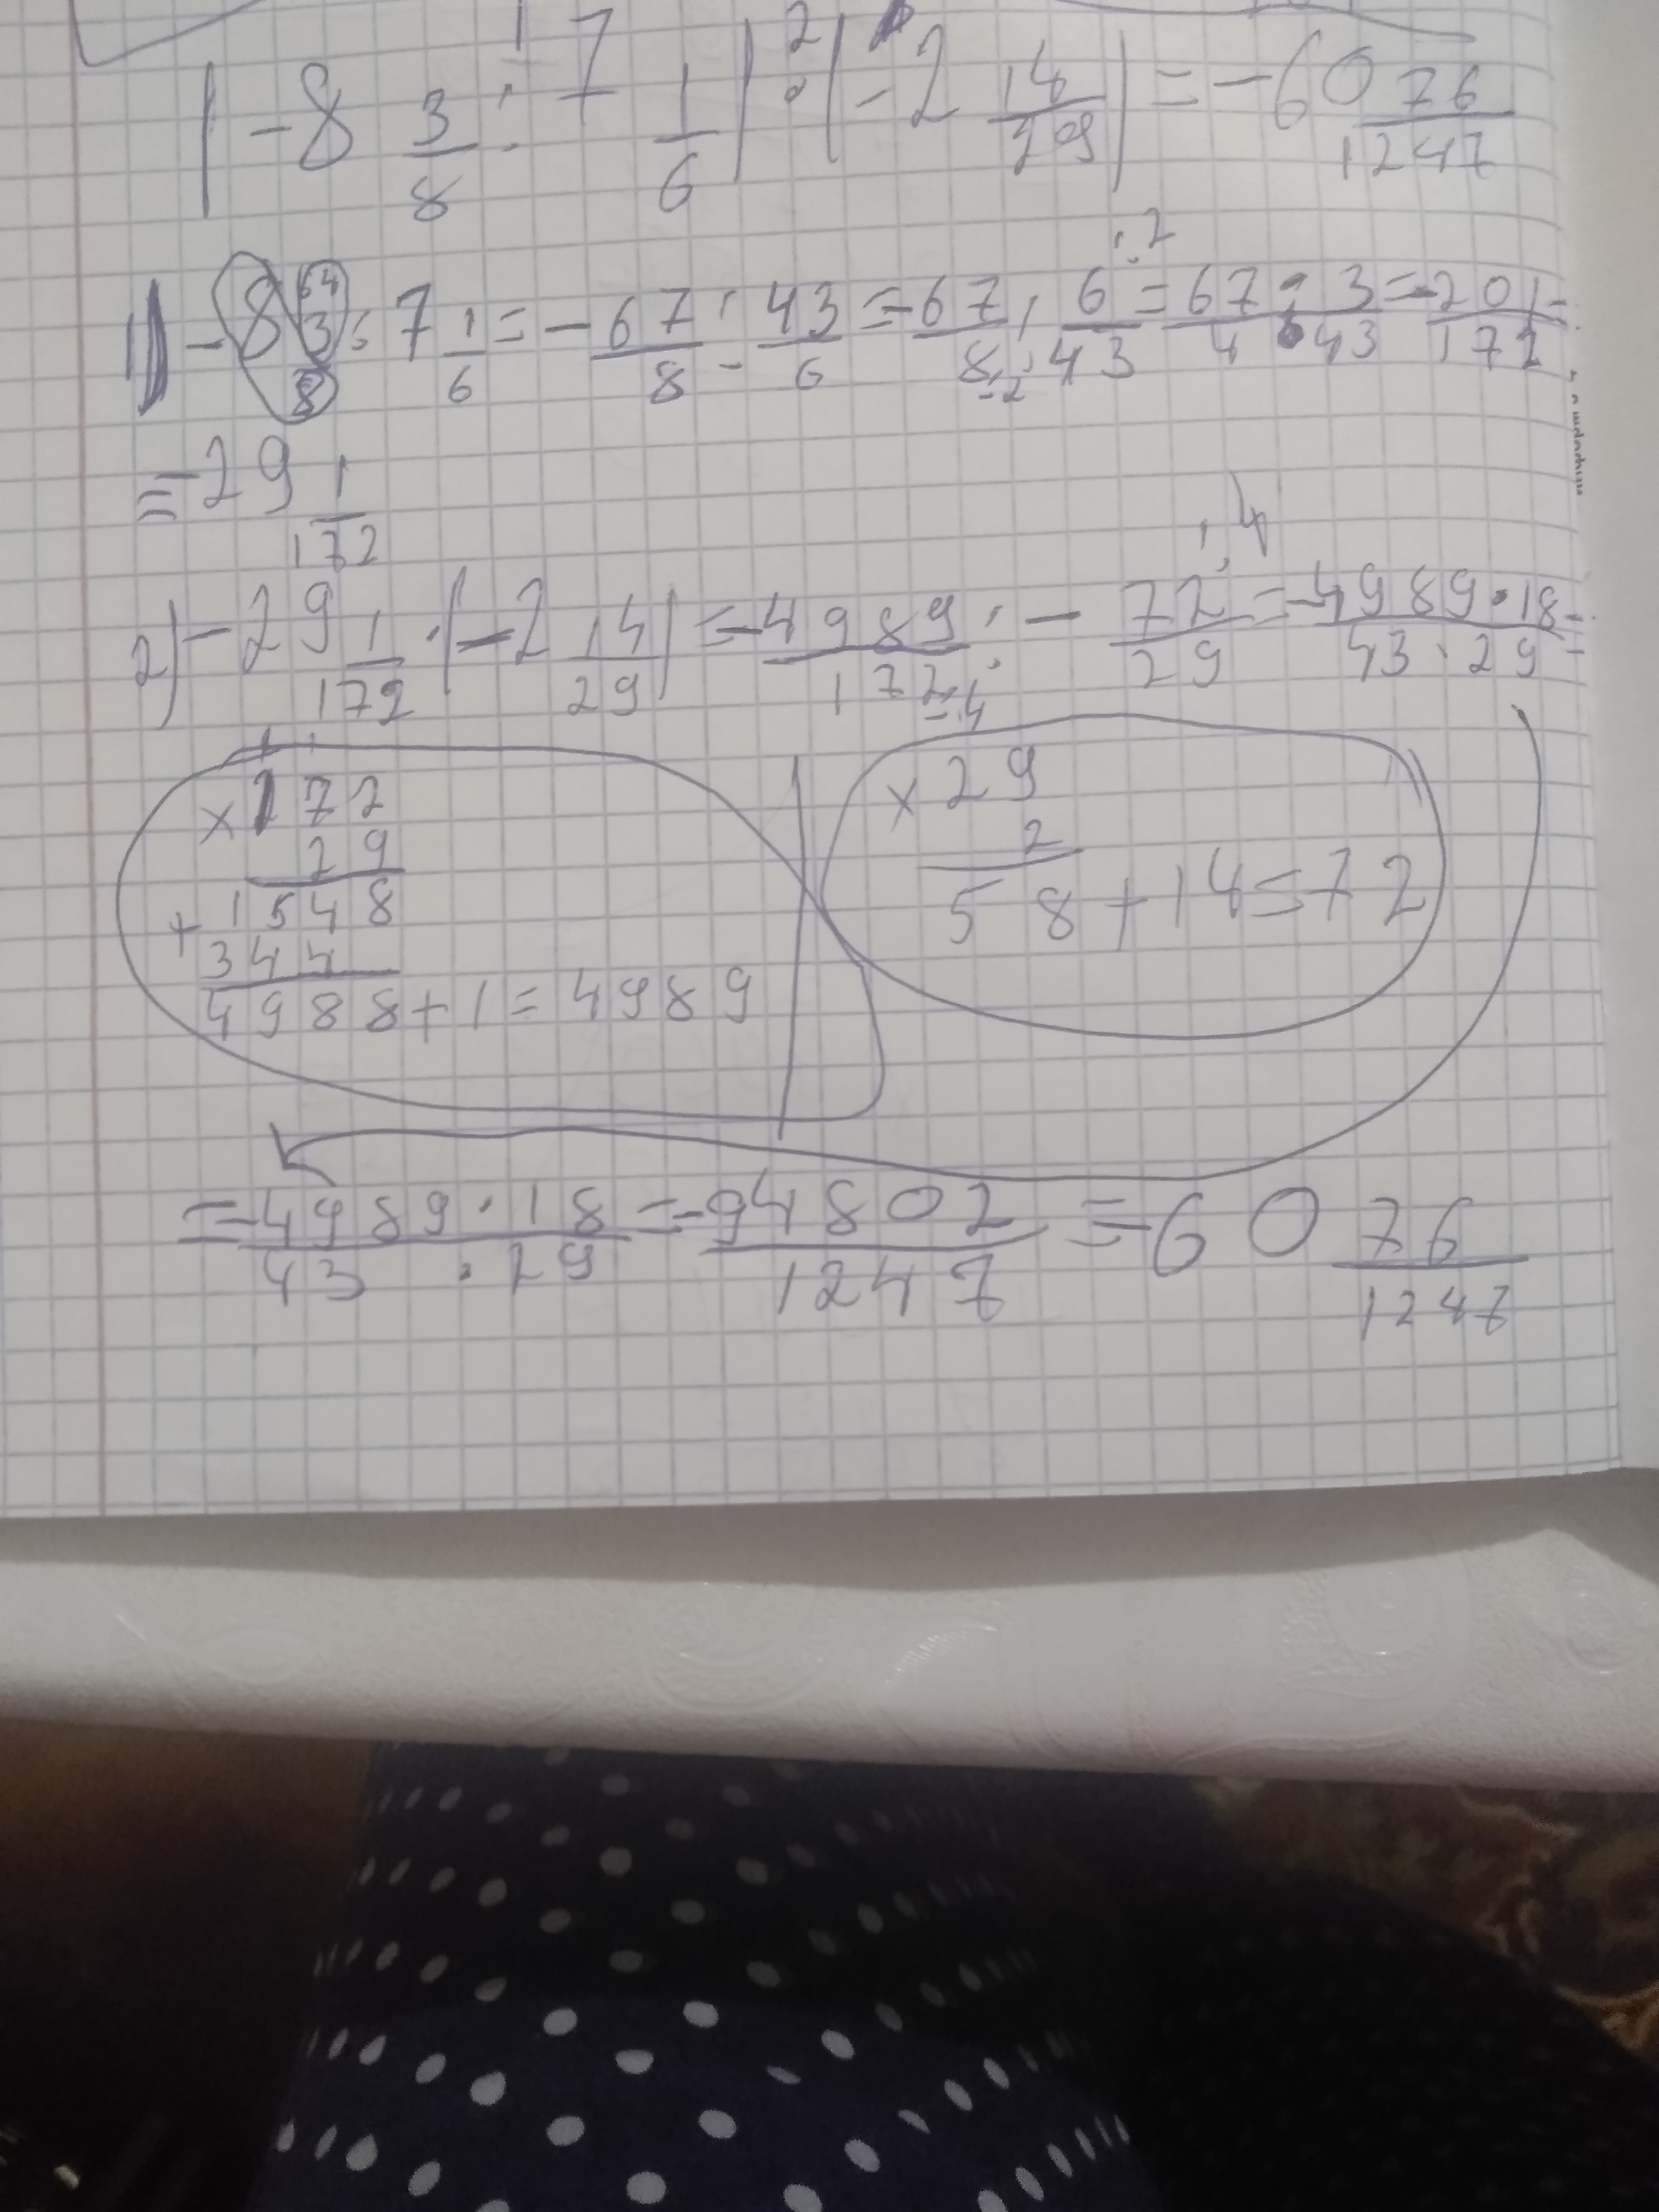 1 2
|-8 3/8 : 7 1/6| : |-2 14/29| = -60 76/1247
1) -8 3/8 : 7 1/6 = -67/8 : 43/6 = -67/8 : 6/43 = 67 · 3/4 · 43 = -201/172 =
= -29 1/172
2) -29 1/172 · |-2 14/29| = -4989/172 : -72/29 = -4989·18/43·29 =
×172
29
+1548
344
4988+1=4989
×29
2
58+14=72
= -4989·18/43·29 = -94802/1247 = -60 76/1247